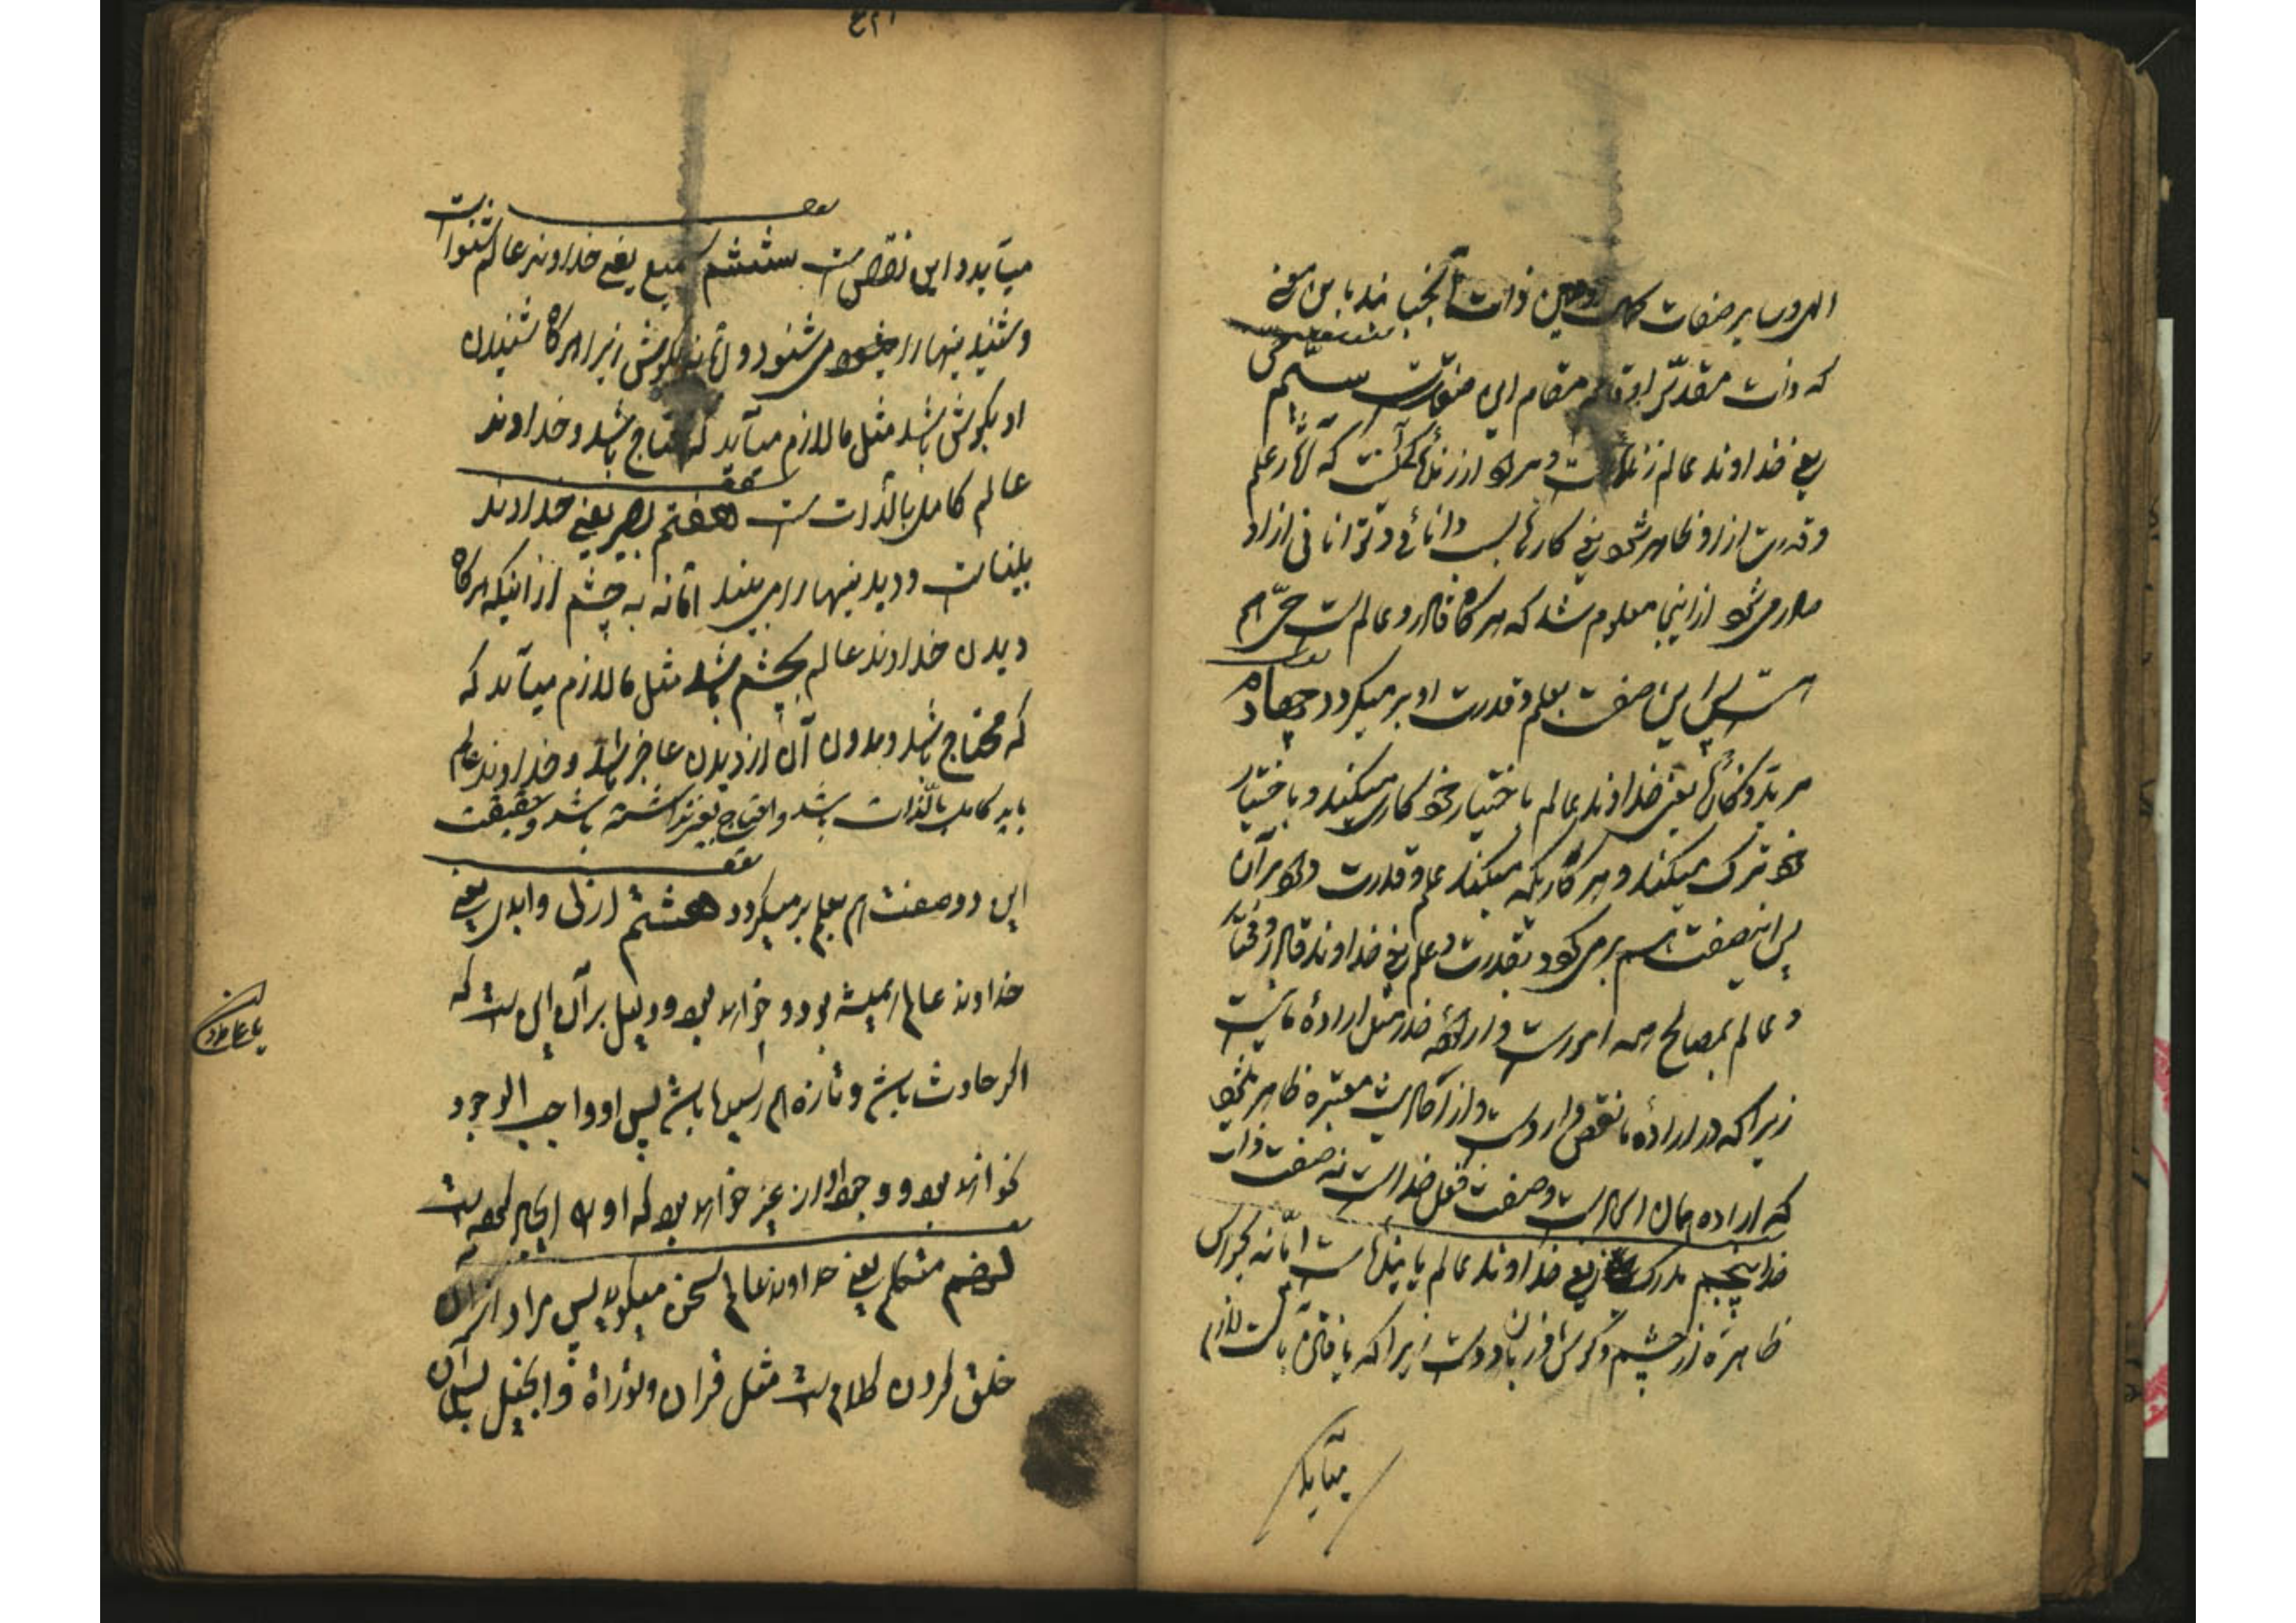 که ذات مقدّس او قائم مقام این صفتست سیّم حی
یعنی خداوند عالم زنده است و مراد از زندگی آنست که آثار علم
و قدرت از او ظاهر شود یعنی کارهای دانائی و توانائی از او
صادر می‌شود از اینجا معلوم شد که هر گاه قادر و عالم است حیّ هم
هست پس این صفت بعلم و قدرت او بر میگردد چهارم
مرید و کاره یعنی خداوند عالم باختیار خود کاری میکند و باختیار
خود ترک میکند و هر کاریکه میکند علم و قدرت دارد بر آن
پس اینصفت هم بر میگردد بقدرت و علم یعنی خداوند قادر و مختار
و عالم بمصالح همه امور است و ارادهٔ خدا مثل ارادهٔ ما نیست
زیرا که در ارادهٔ ما نقص وارد است و از احادیث معتبره ظاهر میشود
که اراده همان است و صفت فعل خداست نه صفت ذات
خدا پنجم مدرک یعنی خداوند عالم یابنده است امّا نه بحواس
ظاهره از چشم و گوش و زبان و دست زیرا که لازم
میآید
میآید و این نقص است ششم سمیع یعنی خداوند عالم شنوا است
و شنیدنیها را می شنود و امّا نه بگوش زیرا هر گاه شنیدن
او بگوش باشد مثل ما لازم میآید که محتاج باشد و خداوند
عالم کامل بالذّات است هفتم بصیر یعنی خداوند
بیناست و دیدنیها را می بیند امّا نه به چشم از اینکه هر گاه
دیدن خداوند عالم بچشم باشد مثل ما لازم میآید که
که محتاج باشد و بدون آن از دیدن عاجز باشد و خداوند عالم
باید کامل بالذّات باشد و احتیاج بغیر نداشته باشد و حقیقت
این دو صفت هم بعلم بر میگردد هشتم ازلی و ابدی یعنی
خداوند عالم همیشه بود و خواهد بود و دلیل بر آن این است که
اگر حادث باشد و تازه هم رسیده باشد پس او واجب الوجود
نخواهد بود و وجود او از غیر خواهد بود که او را ایجاد کرده است
نهم متکلم یعنی خداوند عالم سخن میگوید پس مراد از آن
خلق کردن کلام است مثل قران و توراة و انجیل